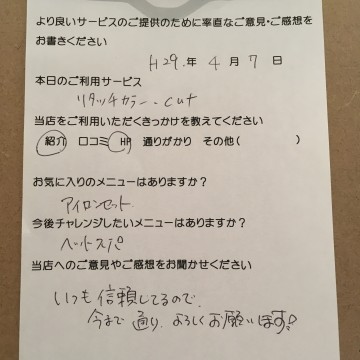 より良いサービスのご提供のために率直なご意見・ご感想を
お書きください
H29.年 4月 7日
本日のご利用サービス
リタッチカラー・cut
当店をご利用いただくきっかけを教えてください
紹介 口コミ HP 通りがかり その他( )
お気に入りのメニューはありますか?
アイロンセット
今後チャレンジしたいメニューはありますか?
ヘッドスパ
当店へのご意見やご感想をお聞かせください
いつも信頼してるので、
今まで通り、よろしくお願いします!